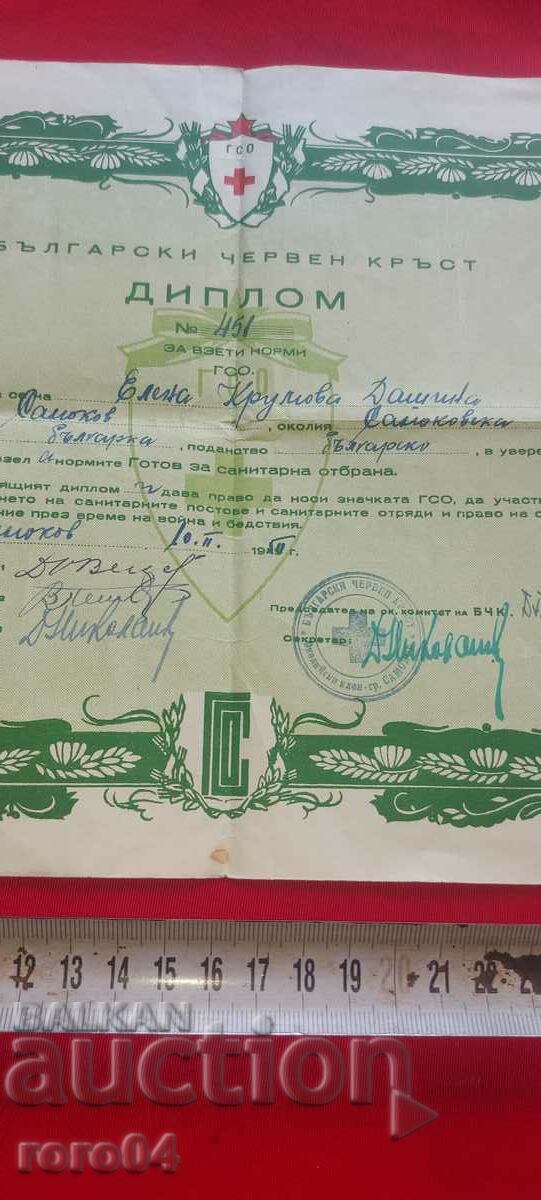 ГСО
БЪЛГАРСКИ ЧЕРВЕН КРЪСТ
ДИПЛОМ
№ 451
ЗА ВЗЕТИ НОРМИ
ГСО.
Елена Крумова
Самоков, околия Самоковска
българка, поданство българско, в увере
нормите ГОТОВ ЗА САНИТАРНА ОТБРАНА.
ящият диплом дава право да носи значката ГСО, да участ
нето на санитарните постове и санитарните отряди и право на с
ние през време на война и бедствия.
моков 10.II. 19 г.
Председател на ок. комитет на БЧК.
Секретар:
БЪЛГАРСКИ ЧЕРВЕН КРЪСТ
ГСО
12 13 14 15 16 17 18 19 20 21 22
BALKAN
auction
roro04